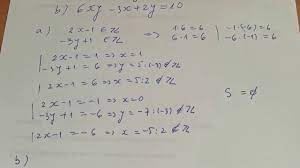 b) 6xy -3x+2y=10
a) 2x-1 ∈ ℤ ⇒ 1·6=6 | -1·(-6)=6
-3y+1 ∈ ℤ 6·1=6 | -6·(-1)=6
| 2x-1=1 ⇒ x=1
| -3y+1=6 ⇒ y=5:(-3) ∉ ℤ
| 2x-1=6 ⇒ x=7:2 ∉ ℤ
| 2x-1=-1 ⇒ x=0
| -3y+1=-6 ⇒ y=-7:(-3) ∉ ℤ S=∅
| 2x-1=-6 ⇒ x=-5:2 ∉ ℤ
b)